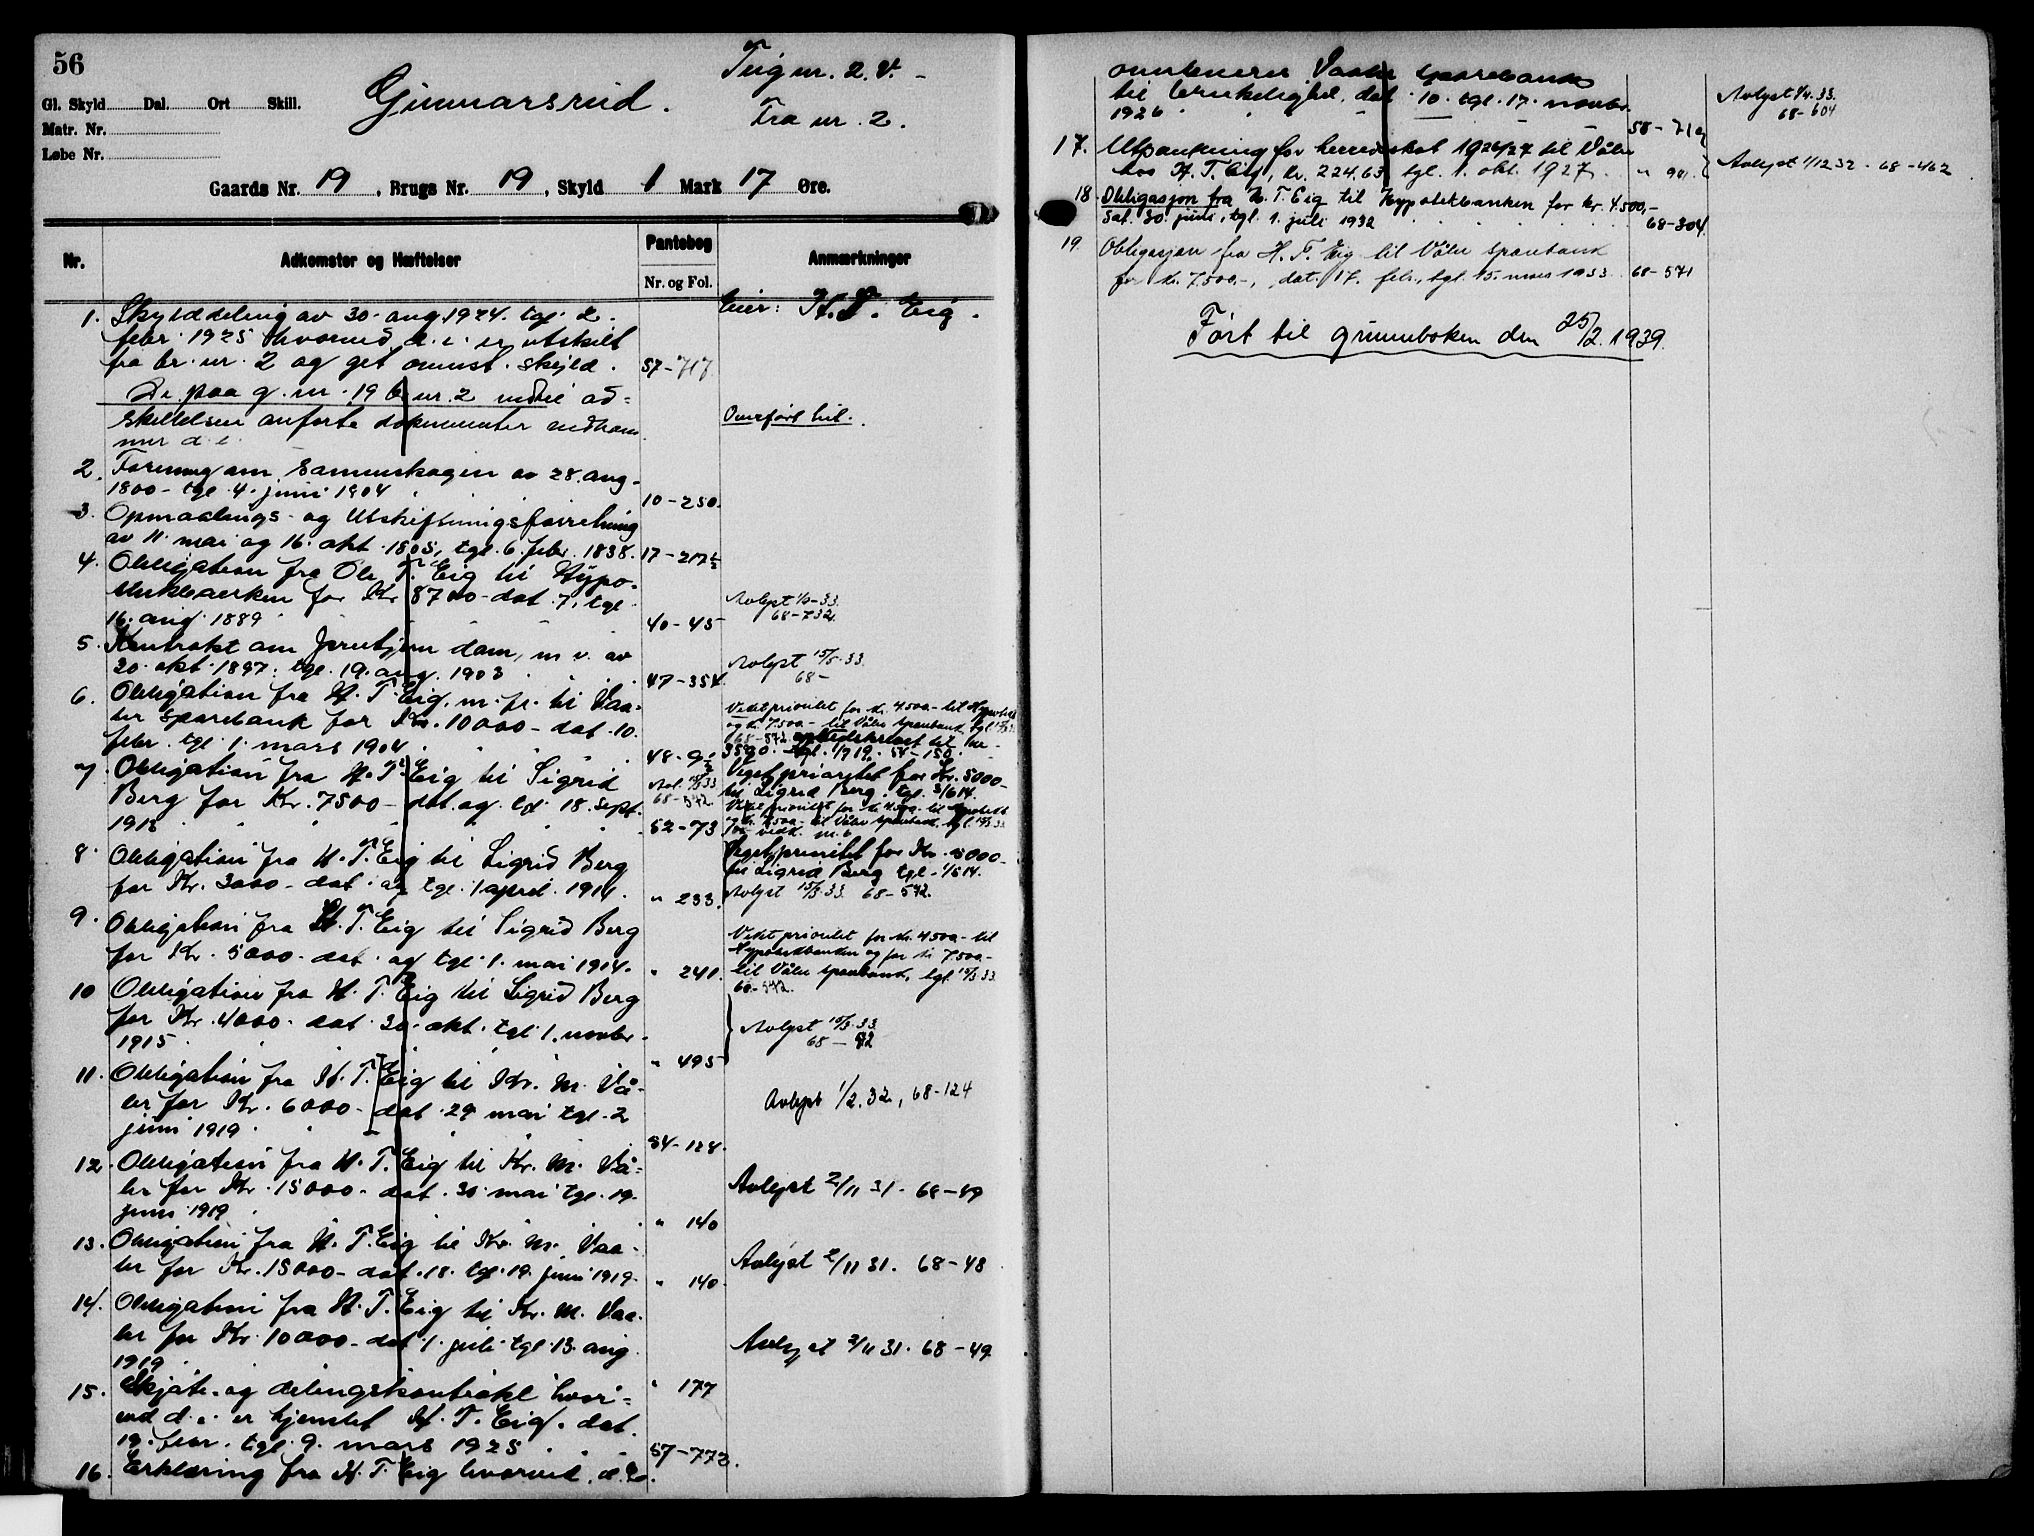 56
Gunnarsrud.
Teig nr. 2. V. -
Fra nr. 2.
Gl. Skyld Dal. Ort Skill.
Matr. Nr.
Løbe Nr.
Gaards Nr. 19, Brugs Nr. 19, Skyld 1 Mark 17 Øre.
Nr. Adkomster og Hæftelser Pantebog Nr. og Fol. Anmærkninger
Eier: H. T. Eig.
1. Skylddeling av 30. aug. 1924. tgl. 2.
febr. 1925 hvorved d. e. er utskilt
fra br. nr. 2 og git omst. skyld. 57-717
De paa g. nr. 19 br. nr. 2 indtil ad=
skillelsen anførte dokumenter vedkom
mer d. e.
Overført hit.
2. Forening om Sameieskogen av 28. aug.
1800 - tgl. 4. juni 1904 10-250.
3. Opmaalings- og Utskiftningsforretning
av 11. mai og 16. okt. 1805, tgl. 6. febr. 1838. 17-217½
4. Obligation fra Ole T. Eig til Hypo=
thekbanken for Kr. 8700 - dat. 7. tgl.
16. aug. 1889 40-45
Avlyst 33.
68-732.
5. Kontrakt om dam, m. v. av
20. okt. 1897. tgl. 19. aug. 1903 47-354.
Avlyst 15/5.33.
68-
6. Obligation fra H. T. Eig, m. fr. til Vaa=
ler Sparebank for Kr. 10000 - dat. 10.
febr. tgl. 1. mars 1904. 48-9½
Veket prioritet for kr. 4500.- til Hypotekb.
og kr. 7500.- til Våler Sparebank, tgl. 15/3 33
68-572. nedskrevet til kr.
3590. tgl. 1/7 19. 54-150.
7. Obligation fra H. T. Eig til Sigrid
Berg for Kr. 7500 - dat. og tgl. 18. sept.
1913 52-73
Avl. 15/3 33
68-572
Veget prioritet for Kr. 5000-
til Sigrid Berg. tgl. 3/6 14.
Veket prioritet for kr. 4500.- til Hypotekb.
og kr. 7500.- til Våler Sparebank, tgl. 15/3 33
8. Obligation fra H. T. Eig til Sigrid Berg
for Kr. 3000 - dat. og tgl. 1 april. 1914. " 233.
Veget prioritet for Kr. 5000-
til Sigrid Berg tgl. 1/6 14.
Avlyst 15/3.33. 68-572.
9. Obligation fra H. T. Eig til Sigrid Berg
for Kr. 5000 - dat. og tgl. 1. mai 1914. " 241.
Veket prioritet for kr. 4500.- til
Hypotekbanken og for kr. 7500.-
til Våler Sparebank, tgl. 15/3 33.
68-572.
10. Obligation fra H. T. Eig til Sigrid Berg
for Kr. 4000 - dat. 30. okt. tgl. 1. novbr.
1915 " 495
Avlyst 15/3.33.
68 -
11. Obligation fra H. T. Eig til Kr. M. Vå=
ler for Kr. 6000 - dat. 29 mai tgl. 2
juni 1919. 54-128.
Avlyst 1/2.32, 68-124
12. Obligation fra H. T. Eig til Kr. M. Vå=
ler for Kr. 15000 - dat. 30. mai tgl. 19.
juni 1919 " 140
Avlyst 2/11 31. 68-49
13. Obligation fra H. T. Eig til Kr. M. Vaa=
ler for Kr. 15000 - dat. 18. tgl. 19. juni 1919. " 140.
Avlyst 2/11 31. 68-48
14. Obligation fra H. T. Eig til Kr. M. Vaa=
ler for Kr. 10000 - dat. 1. juli tgl. 13. aug.
1919. " 177
Avlyst 2/11 31. 68-49.
15. Skjøte- og delingskontrakt hvor=
ved d. e. er hjemlet H. T. Eig. dat.
19. febr. tgl. 9. mars 1925 57-772.
16. Erklæring fra H. T. Eig hvorved d. e.
Vaaler Sparebank
til dat. 10. tgl. 17. novbr.
1926 58-
Avlyst 1/4.33.
68-604
17. Utpantning for herredskat 1926/27 til Våler
hos H. T. Eig, kr. 224.63 tgl. 1. okt. 1927. "
Avlyst 1/12 32 - 68-462
18. Obligasjon fra H. T. Eig til Hypotekbanken for kr. 4500,-
dat. 30. juni, tgl. 1. juli 1932 68-304.
19. Obligasjon fra H. T. Eig til Våler Sparebank
for kr. 7500.-, dat. 17. febr., tgl. 15. mars 1933. 68-571
Ført til grunnboken den 25/2. 1939.